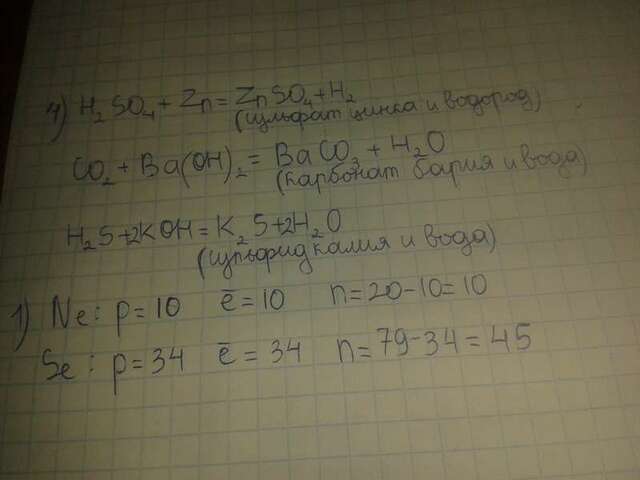 4) H₂SO₄ + Zn = ZnSO₄ + H₂
(сульфат цинка и водород)
CO₂ + Ba(OH)₂ = BaCO₃ + H₂O
(карбонат бария и вода)
H₂S + 2KOH = K₂S + 2H₂O
(сульфид калия и вода)
1) Ne: p = 10 ē = 10 n = 20 - 10 = 10
Se: p = 34 ē = 34 n = 79 - 34 = 45